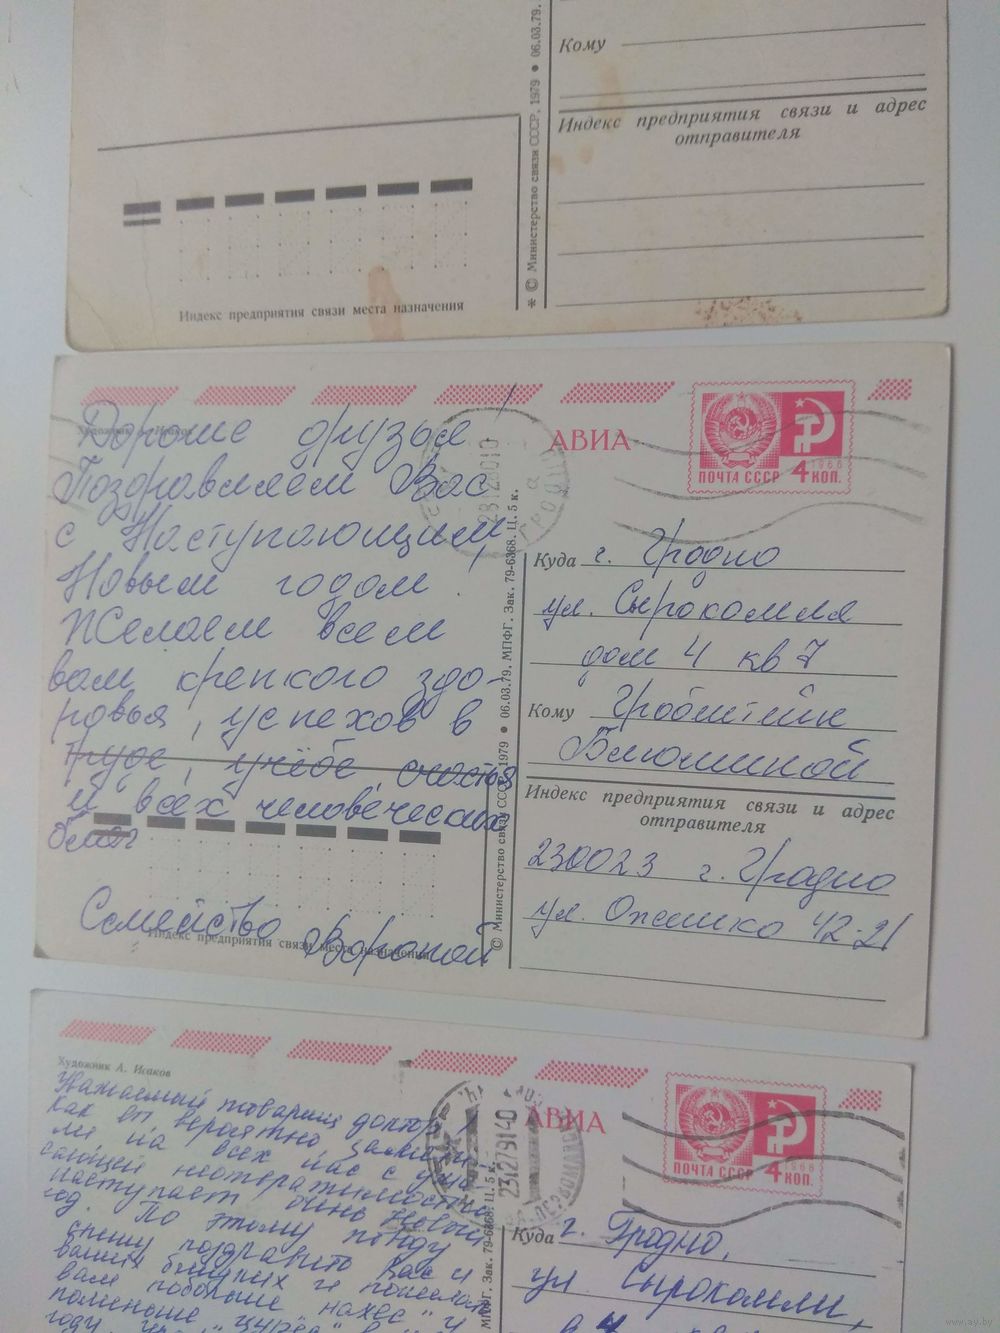 Кому
Индекс предприятия связи и адрес
отправителя
Индекс предприятия связи места назначения
* © Министерство связи СССР, 1979 • 06.03.79.
Дорогие друзья!
Поздравляем Вас
с Наступающим
Новым годом!
Желаем всем
вам крепкого здо-
ровья, успехов в
труде, учёбе счастья
и всех человеческих
благ
Семейство Вороной
Индекс предприятия связи места назначения
© Министерство связи СССР, 1979 • 06.03.79. МПФГ. Зак. 79-6368. Ц. 5 к.
АВИА
ПОЧТА СССР 4 КОП.
1966
Куда г. Гродно
ул. Сырокомля
дом 4 кв 7
Кому Гробштейн
Блюминой
Индекс предприятия связи и адрес
отправителя
230023 г. Гродно
ул. Ожешко 42-21
Художник А. Исаков
Уважаемый товарищ доктор,
Как вы, вероятно, заметили
на всех нас с
неотвратимостью
наступает Новый
год. По этому поводу
спешу поздравить Вас и
ваших близких и пожелать
вам побольше "нахес" и
поменьше "цурес" в
году
МПФГ. Зак. 79-6368. Ц. 5 к.
АВИА
ПОЧТА СССР 4 КОП.
1966
Куда г. Гродно,
ул Сырокомли,
www.ay.by